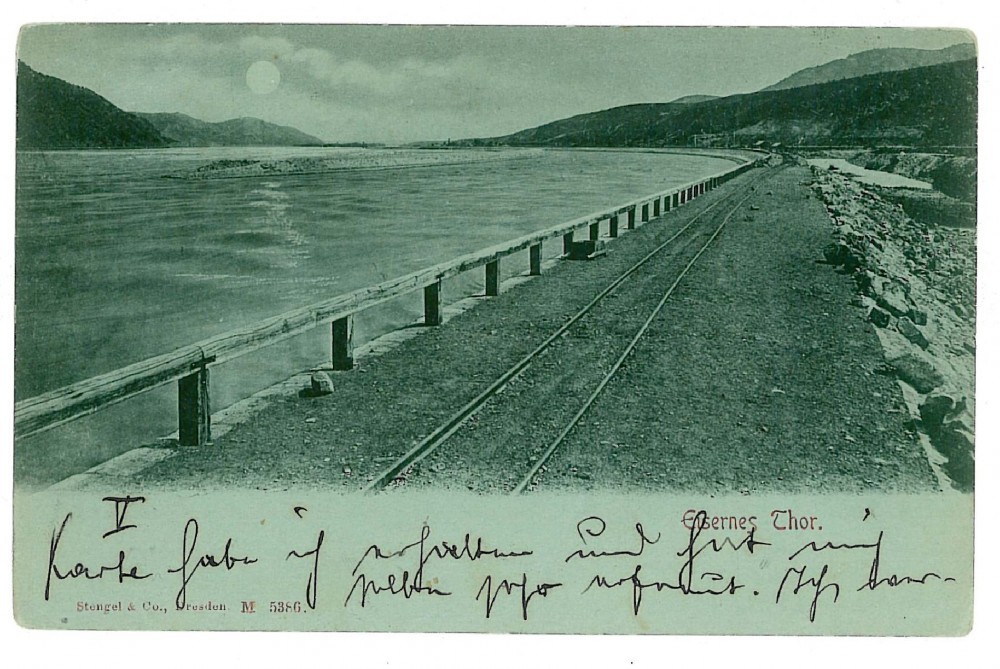 Eisernes Thor.
V
Karte habe ich erhalten und hat mich
selbe sehr erfreut. Ich wer-
Stengel & Co., Dresden M 5386.